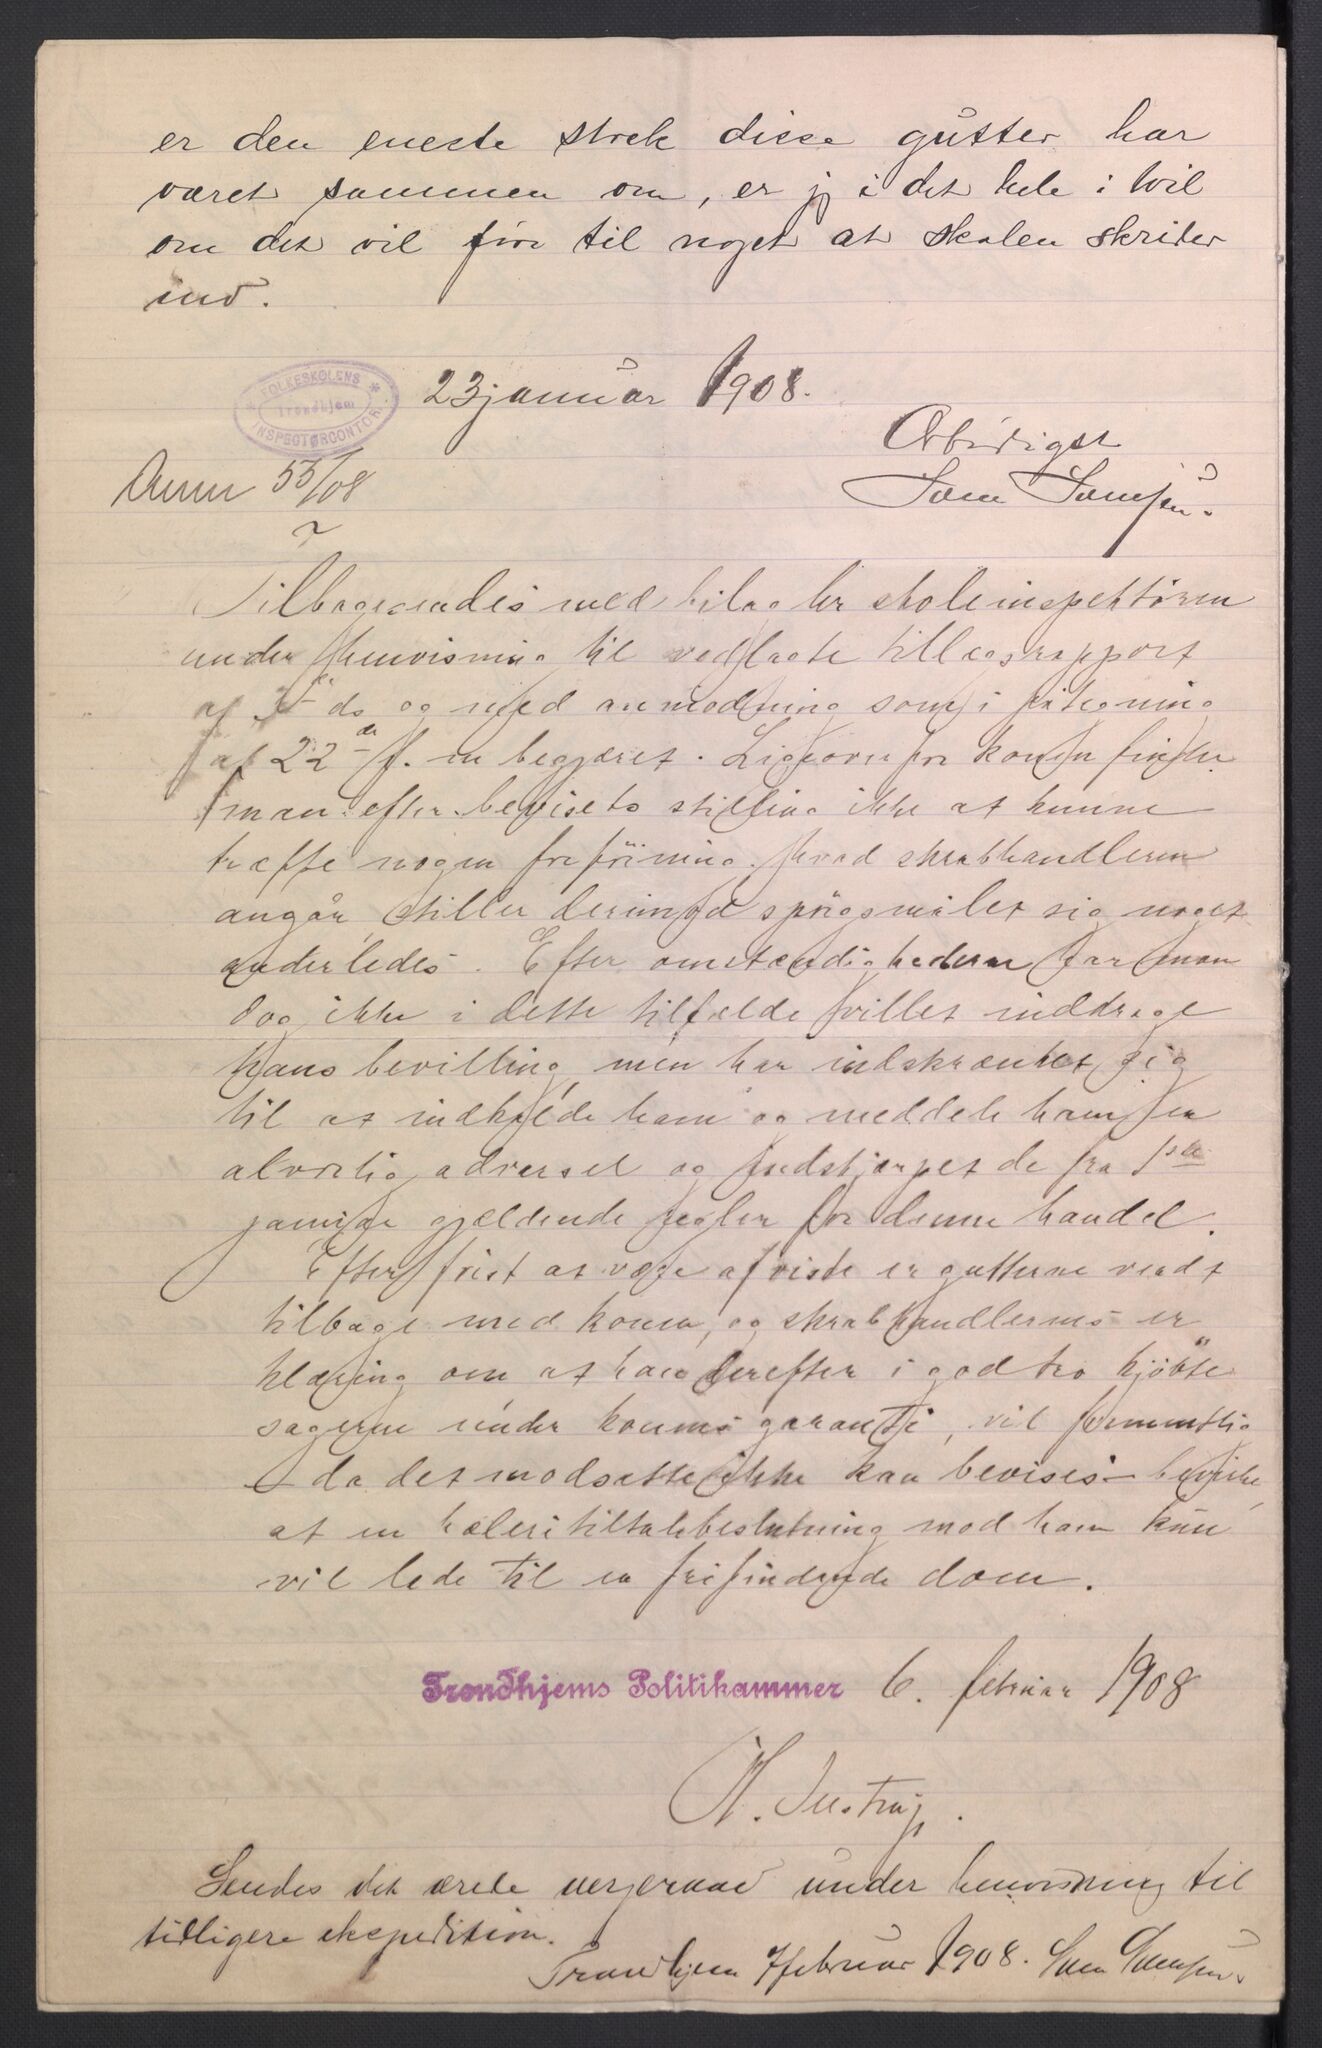 er den eneste strek disse gutter har
været sammen om, er jeg i det hele i tvil
om det vil føre til noget at skolen skrider
ind.
FOLKESKOLENS
Trondhjem
INSPECTØRCONTOR
23 januar 1908.
Ærbødigst
55/08
Tilbagesendes med bilag hr skoleinspektøren
under henvisning til vedlagte tillægsrapport
af ds og med anmodning som i påtegning
af 22de f. m begjæret. Ligeoverfor konen finder
man efter bevisets stilling ikke at kunne
træffe nogen forføining. Hvad skrabhandleren
angår, stiller derimod spørgsmålet sig noget
anderledes. Efter omstændighederne har man
dog ikke i dette tilfælde villet inddrage
hans bevilling, men har indskrænket sig
til at indkalde ham og meddele ham en
alvorlig advarsel og indskjærpet de fra 1ste
januar gjældende regler for denne handel.
Efter først at være afviste er gutterne vendt
tilbage med konen, og skrabhandlerens er
klæring om at han derefter i god tro kjøbte
sagerne under konens garanti, vil formentlig
- da det modsatte ikke kan bevises - bevirke,
at en hæleritiltalebeslutning mod ham kun
vil lede til en frifindende dom.
Trondhjems Politikammer 6. februar 1908
Sendes det ærede vergeraad under henvisning til
tidligere ekspedition.
Trondhjem 7 februar 1908.